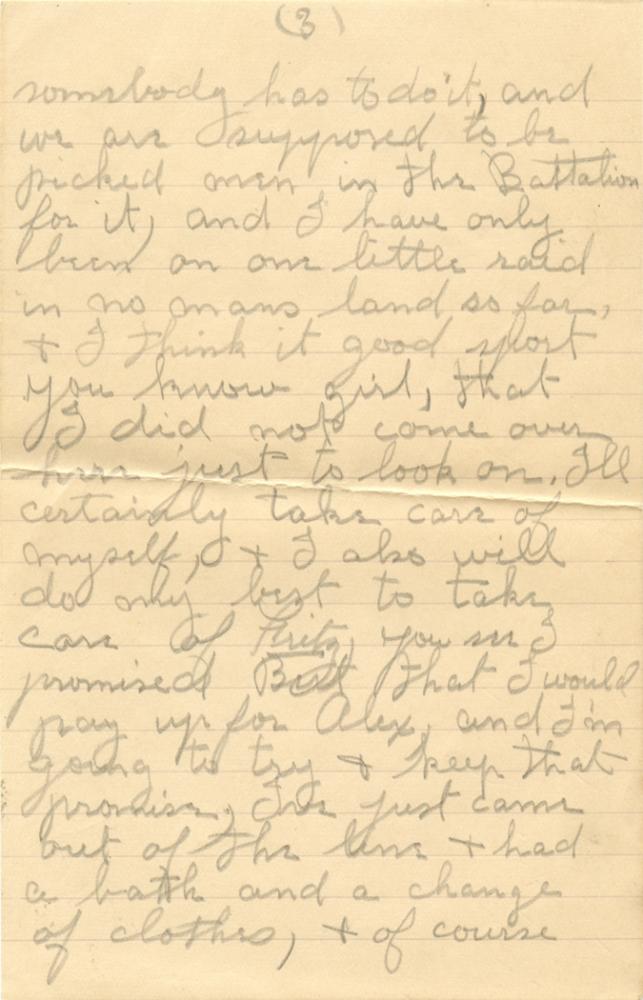 (3)
somebody has to do it, and
we are supposed to be
picked men in the Battalion
for it, and I have only
been on one little raid
in no mans land so far,
+ I think it good sport
you know girl, that
I did not come over
here just to look on. I'll
certainly take care of
myself, + I also will
do my best to take
care of Fritz, you see I
promised that I would
pay up for Alex, and I'm
going to try + keep that
promise, I've just came
out of the line + had
a bath and a change
of clothes, + of course